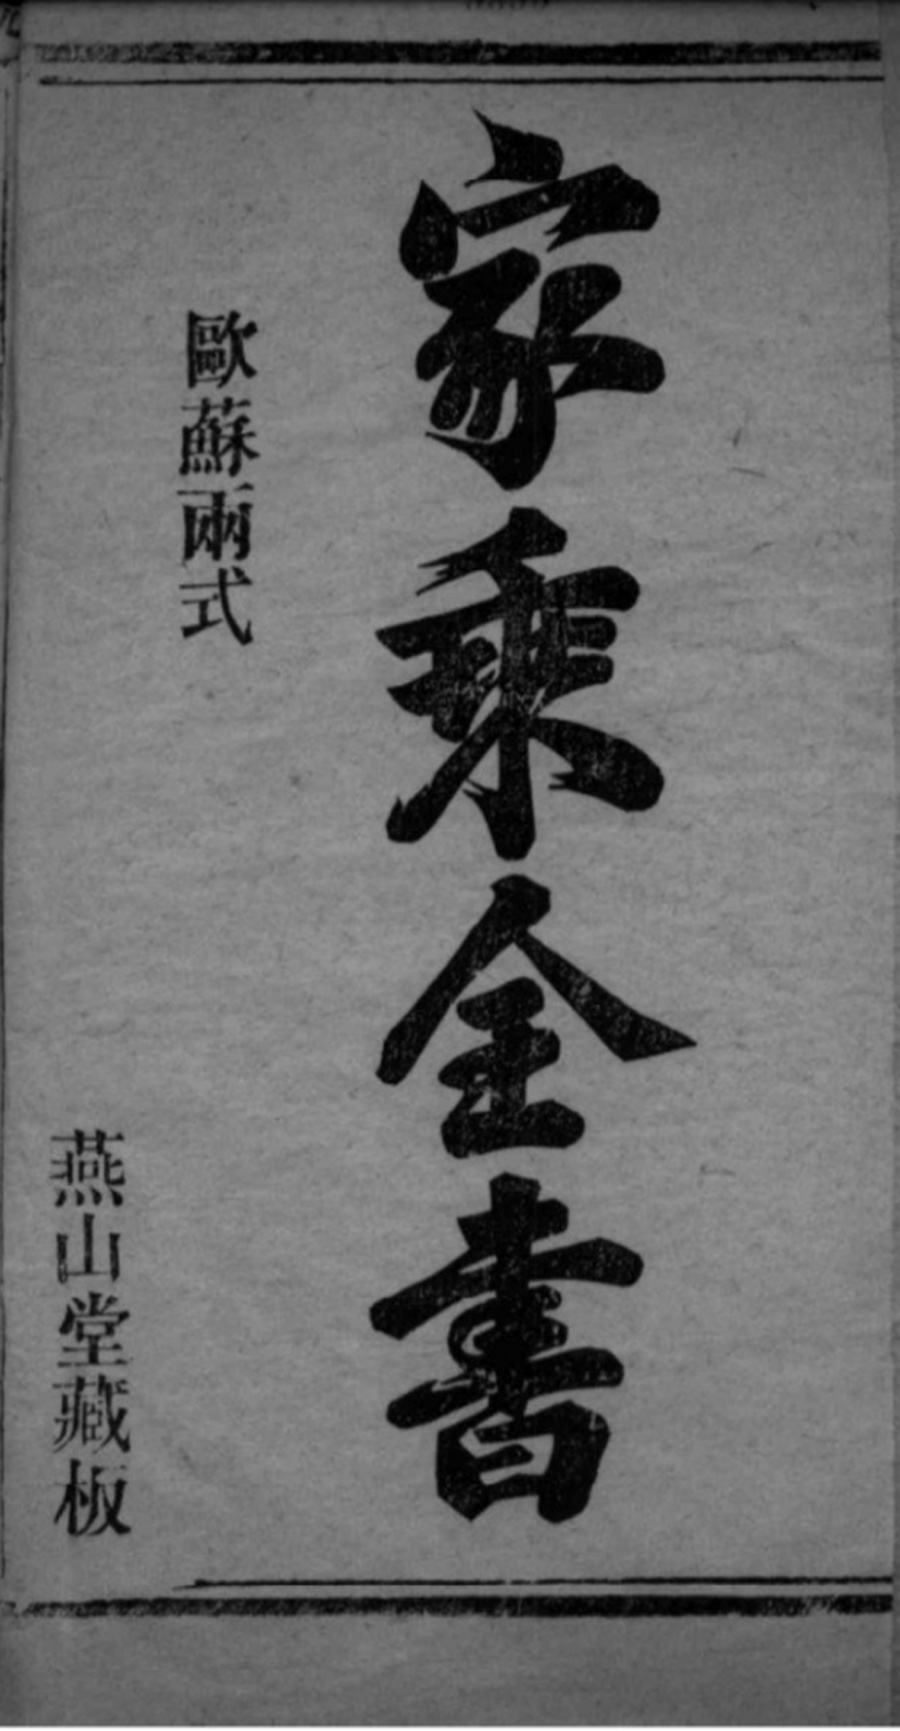 家乘全書
歐蘇兩式
燕山堂藏板